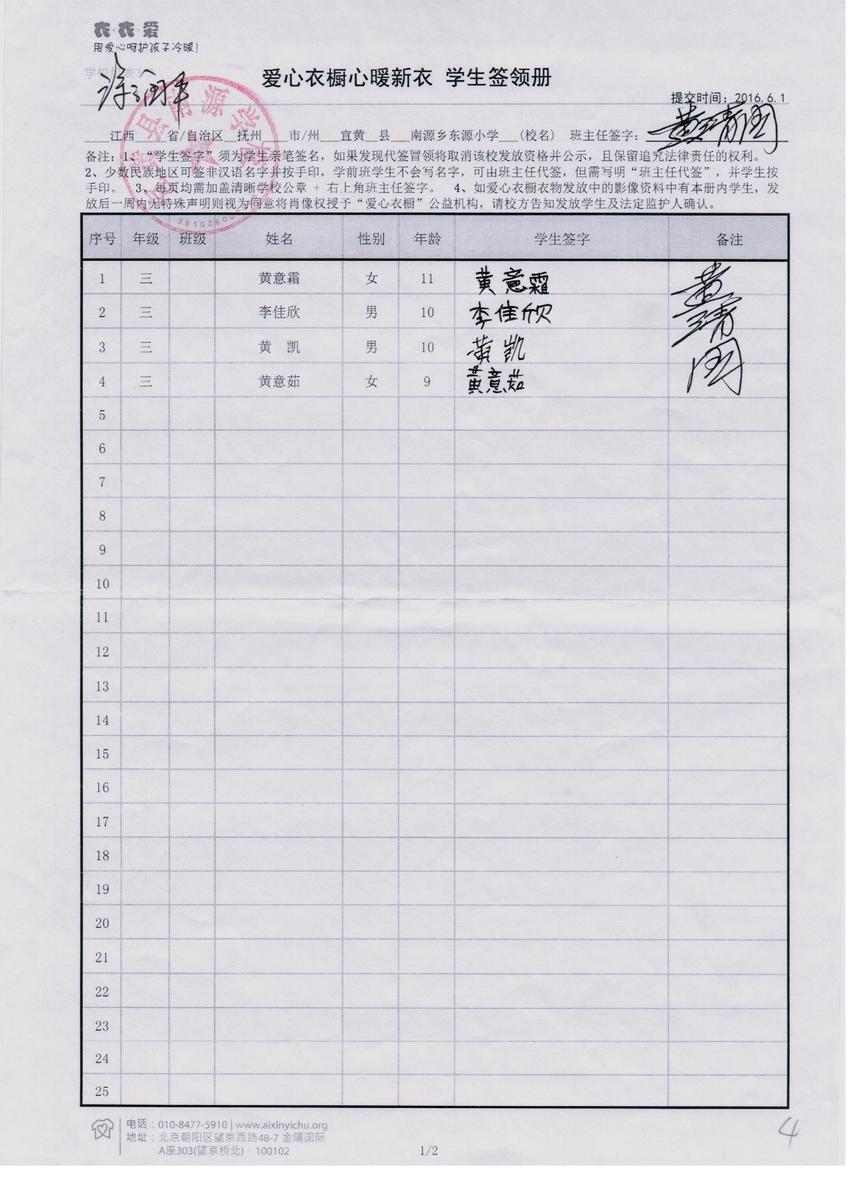 衣·衣·爱
用爱心呵护孩子冷暖!
爱心衣橱心暖新衣 学生签领册
提交时间: 2016.6.1
江西 省/自治区 抚州 市/州 宜黄 县 南源乡东源小学 (校名) 班主任签字:
备注: 1、“学生签字”须为学生亲笔签名, 如果发现代签冒领将取消该校发放资格并公示, 且保留追究法律责任的权利。
2、少数民族地区可签非汉语名字并按手印, 学前班学生不会写名字, 可由班主任代签, 但需写明“班主任代签”, 并学生按
手印。 3、每页均需加盖清晰学校公章 + 右上角班主任签字。 4、如爱心衣橱衣物发放中的影像资料中有本册内学生, 发
放后一周内无特殊声明则视为同意将肖像权授予“爱心衣橱”公益机构, 请校方告知发放学生及法定监护人确认。
序号 年级 班级 姓名 性别 年龄 学生签字 备注
1 三 黄意霜 女 11 黄意霜
2 三 李佳欣 男 10 李佳欣
3 三 黄 凯 男 10 黄凯
4 三 黄意茹 女 9 黄意茹
5
6
7
8
9
10
11
12
13
14
15
16
17
18
19
20
21
22
23
24
25
电话: 010-8477-5910 | www.aixinyichu.org
地址: 北京朝阳区望京西路48-7 金隅国际
A座303(望京桥北) · 100102
1/2
4